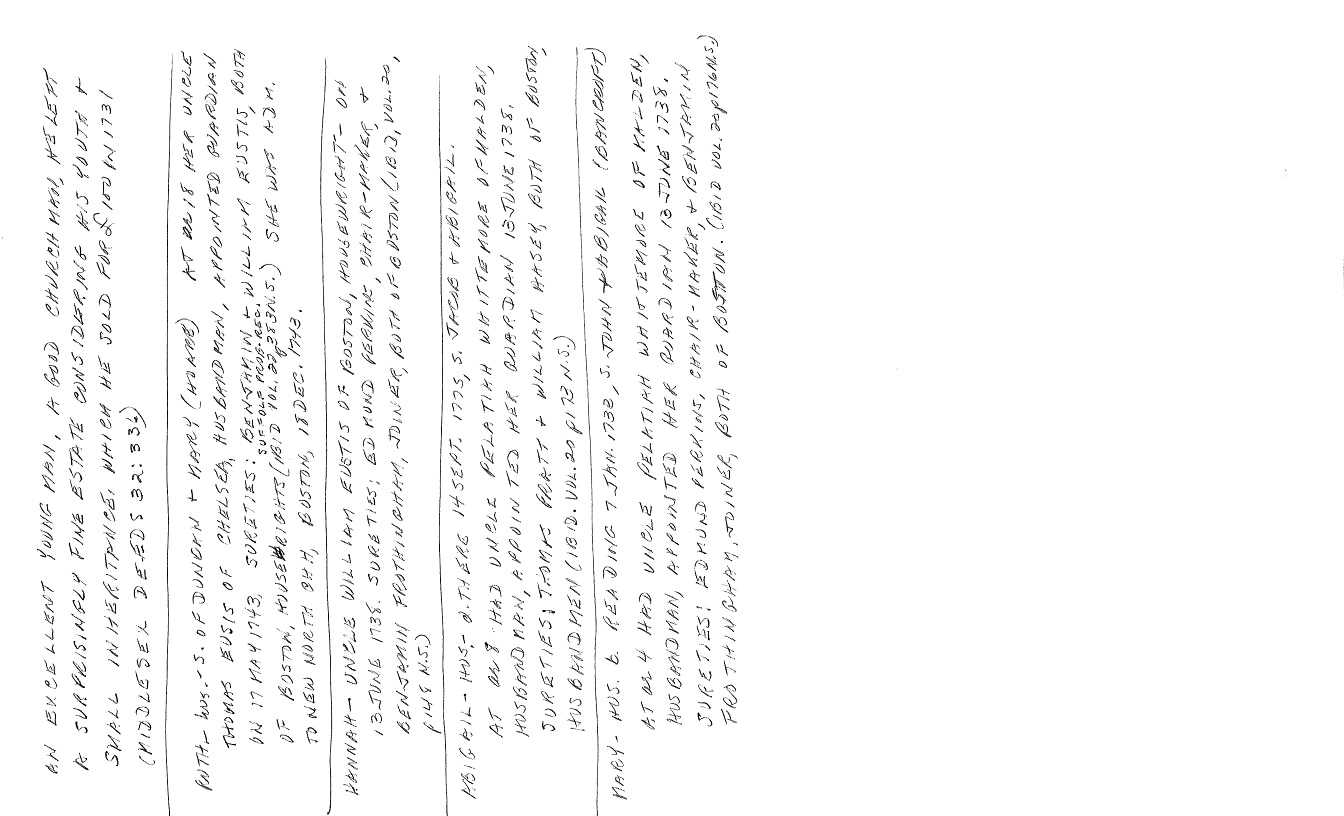 AN EXCELLENT YOUNG MAN, A GOOD CHURCHMAN, HE LEFT
A SURPRISINGLY FINE ESTATE CONSIDERING HIS YOUTH +
SMALL INHERITANCE, WHICH HE SOLD FOR £100 IN 1731
(MIDDLESEX DEEDS 32:332)
RUTH - hus. - S. OF DUNCAN + MARY (HOARE) AT 18 HER UNCLE
THOMAS EUSIS OF CHELSEA, HUSBANDMAN, APPOINTED GUARDIAN
ON 17 MAY 1743. SURETIES: BENJAMIN + WILLIAM EUSTIS, BOTH
SUFFOLF PROB. REC.
OF BOSTON, HOUSEWRIGHTS (IBID VOL. 22 p 353 N.S.) SHE WAS ADM.
TO NEW NORTH CHH, BOSTON, 18 DEC. 1743.
HANNAH - UNCLE WILLIAM EUSTIS OF BOSTON, HOUSEWRIGHT - ON
13 JUNE 1738. SURETIES: EDMUND PERKINS, CHAIR-MAKER, +
BENJAMIN FROTHINGHAM, JOINER, BOTH OF BOSTON (IBID, VOL. 20,
p 148 N.S.)
ABIGAIL - HUS. - d. THERE 14 SEPT. 1775, S. JACOB + ABIGAIL.
AT 8 HAD UNCLE PELATIAH WHITTEMORE OF MALDEN,
HUSBANDMAN, APPOINTED HER GUARDIAN 13 JUNE 1738.
SURETIES: THOMAS PRATT + WILLIAM HASEY, BOTH OF BOSTON,
HUSBANDMEN (IBID. VOL. 20 p 173 N.S.)
MARY - HUS. b. READING 7 JAN. 1732, S. JOHN + ABIGAIL (BANCROFT)
AT 4 HAD UNCLE PELATIAH WHITTEMORE OF MALDEN,
HUSBANDMAN, APPOINTED HER GUARDIAN 13 JUNE 1738.
SURETIES: EDMUND PERKINS, CHAIR-MAKER, + BENJAMIN
FROTHINGHAM, JOINER, BOTH OF BOSTON. (IBID VOL. 20 p 176 N.S.)